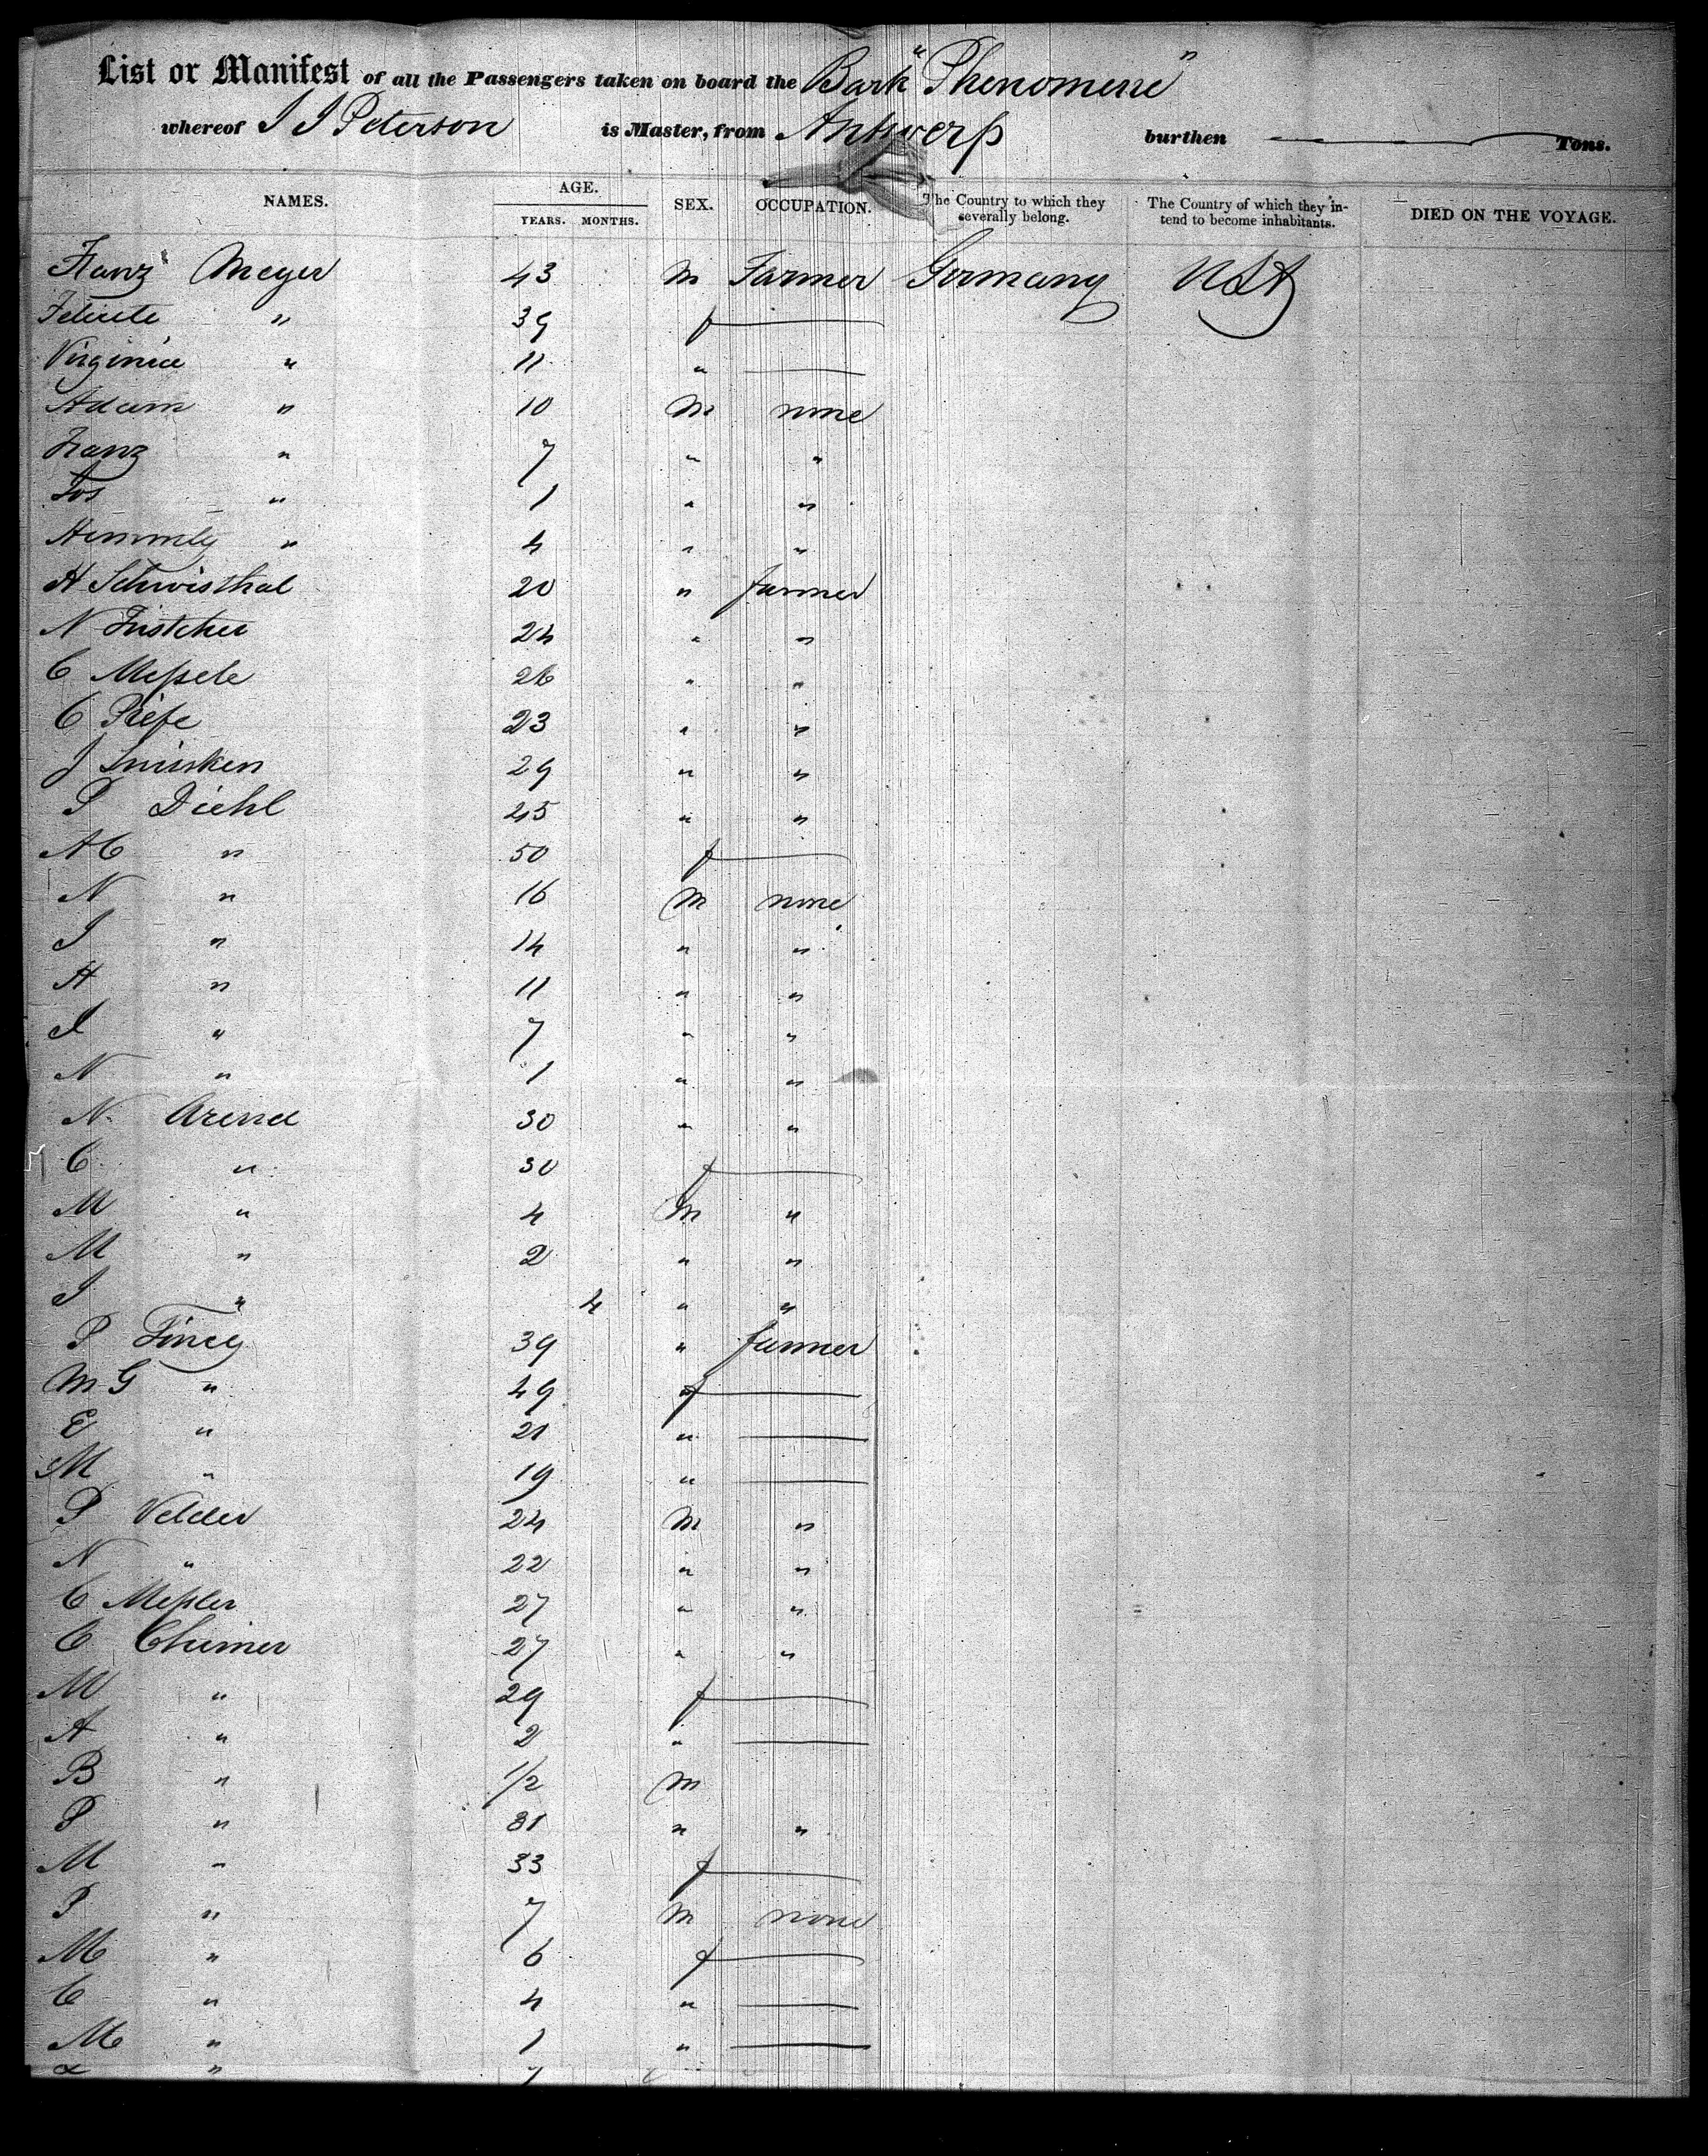 List or Manifest of all the Passengers taken on board the Bark "Phenomene"
whereof J J Peterson is Master, from Antwerp burthen Tons.
NAMES. AGE. YEARS. MONTHS. SEX. OCCUPATION. The Country to which they severally belong. The Country of which they intend to become inhabitants. DIED ON THE VOYAGE.
Franz Meyer 43 m Farmer Germany USA
Felicite " 39 f
Virginia " 11 "
Adam " 10 m none
Franz " 7 " "
Jos " 1 " "
" 4 " "
H Schwisthal 20 " farmer
N 24 " "
C Messele 26 " "
C 23 " "
J 29 " "
P Diehl 45 " "
AC " 50 f
N " 16 m none
J " 14 " "
H " 11 " "
J " 7 " "
N " 1 " "
N. Arend 30 " "
C " 30 f
M " 4 m "
M " 2 " "
J " 4 " "
P 39 " farmer
M G " 49 f
E " 21 "
M " 19 "
P Velder 24 m "
N " 22 " "
C Messler 27 " "
C 27 " "
M " 29 f
A " 2 "
B " 1/2 m
P " 31 " "
M " 33 f
P " 7 m none
M " 6 f
C " 4 "
M " 1 "